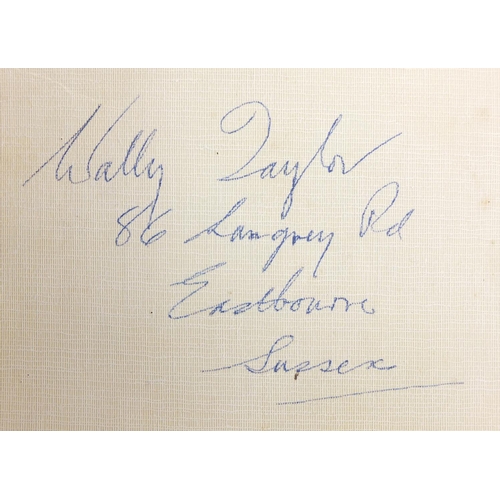 Wally Taylor
86 Langney Rd
Eastbourne
Sussex